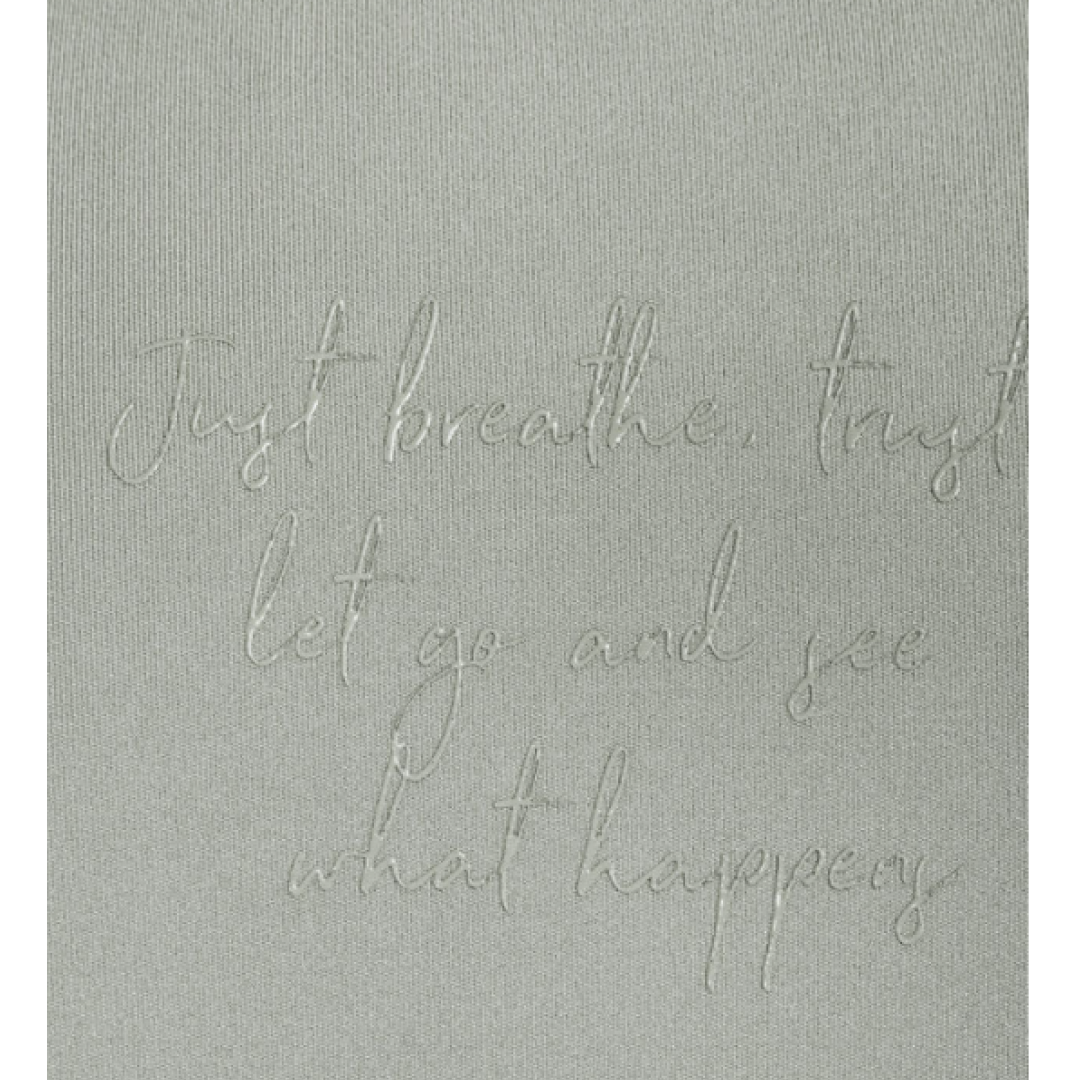 Just breathe. trust
let go and see
what happens